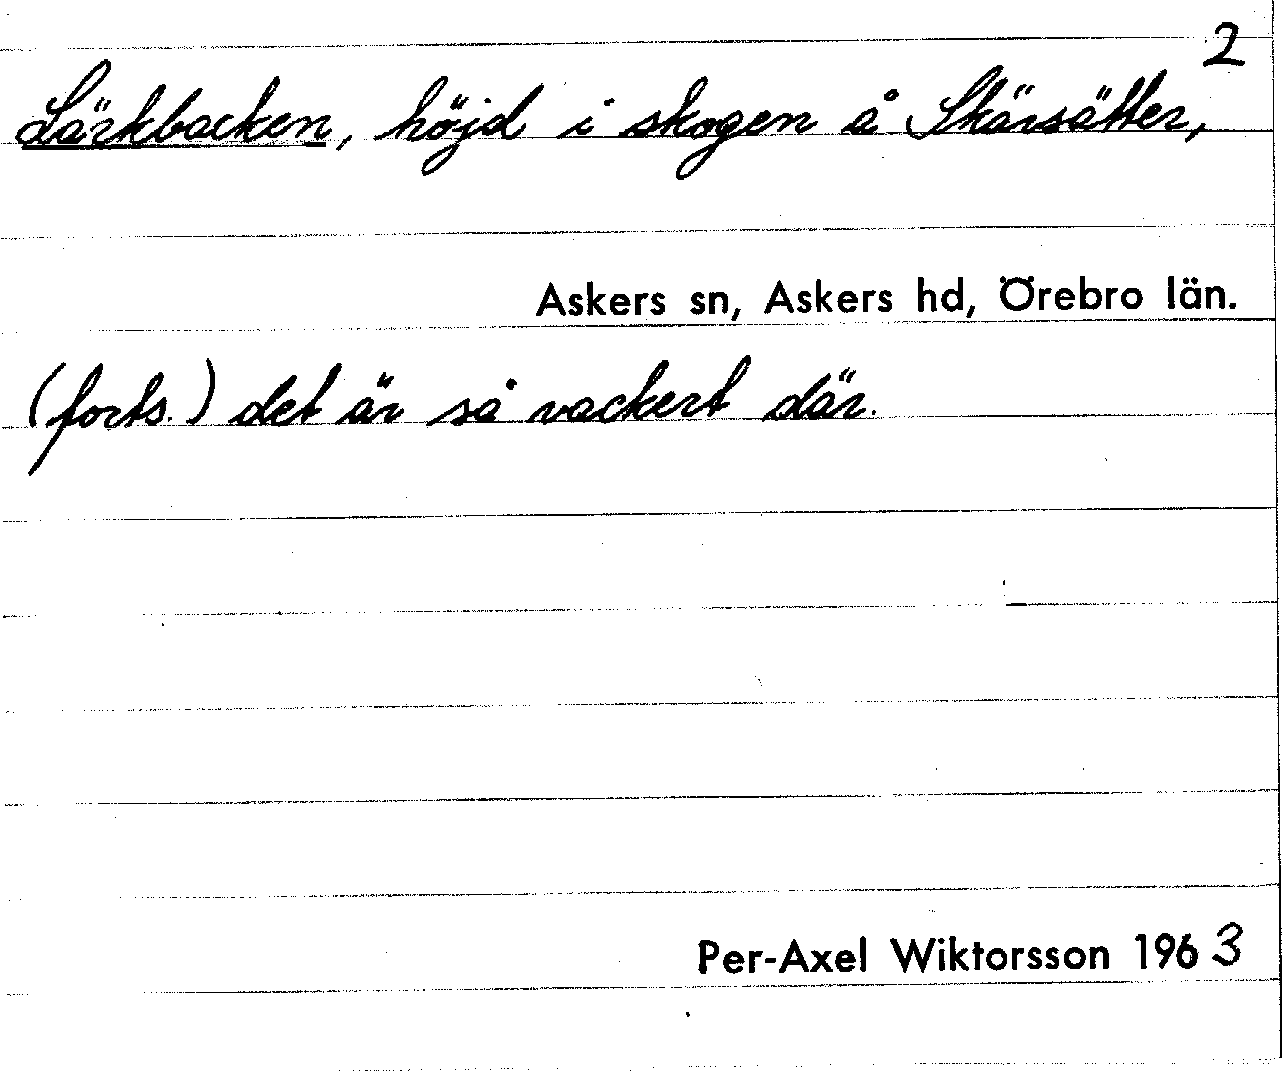 2
Lärkbacken, höjd i skogen å Skärsätter,
Askers sn, Askers hd, Örebro län.
(forts.) det är så vackert där.
Per-Axel Wiktorsson 1963